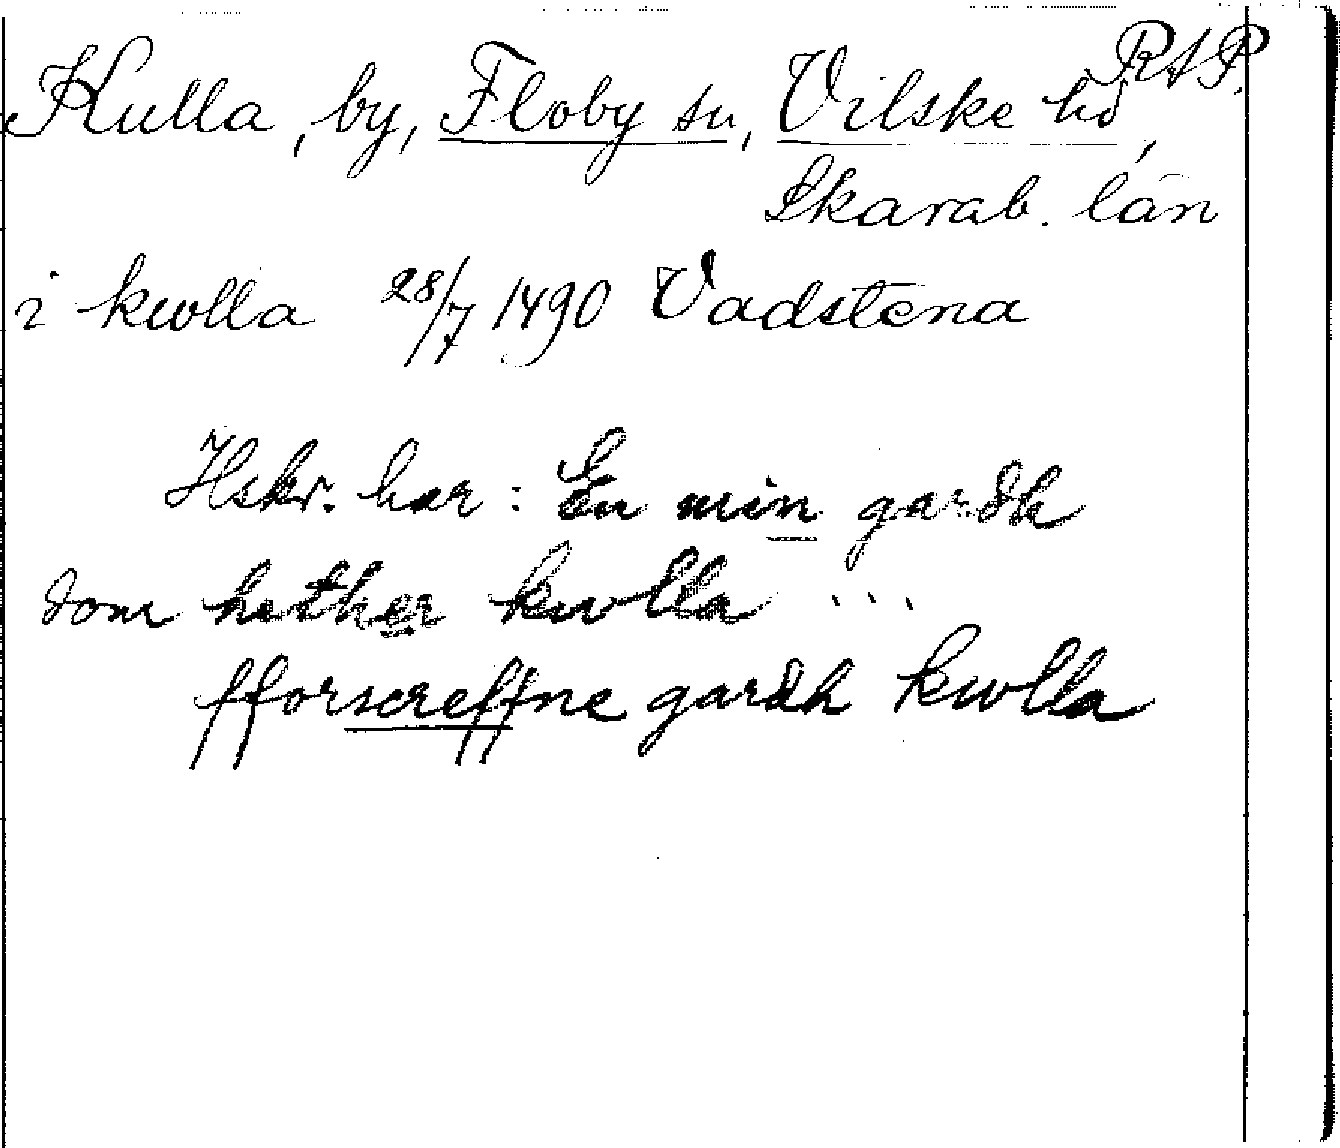 RAP.
Kulla, by, Floby sn, Vilske hd,
Skarab. län
i kwlla 28/7 1490 Vadstena
Hskr. har: En min gardh
som hether kwlla ...
fforscreffne gardh kwlla